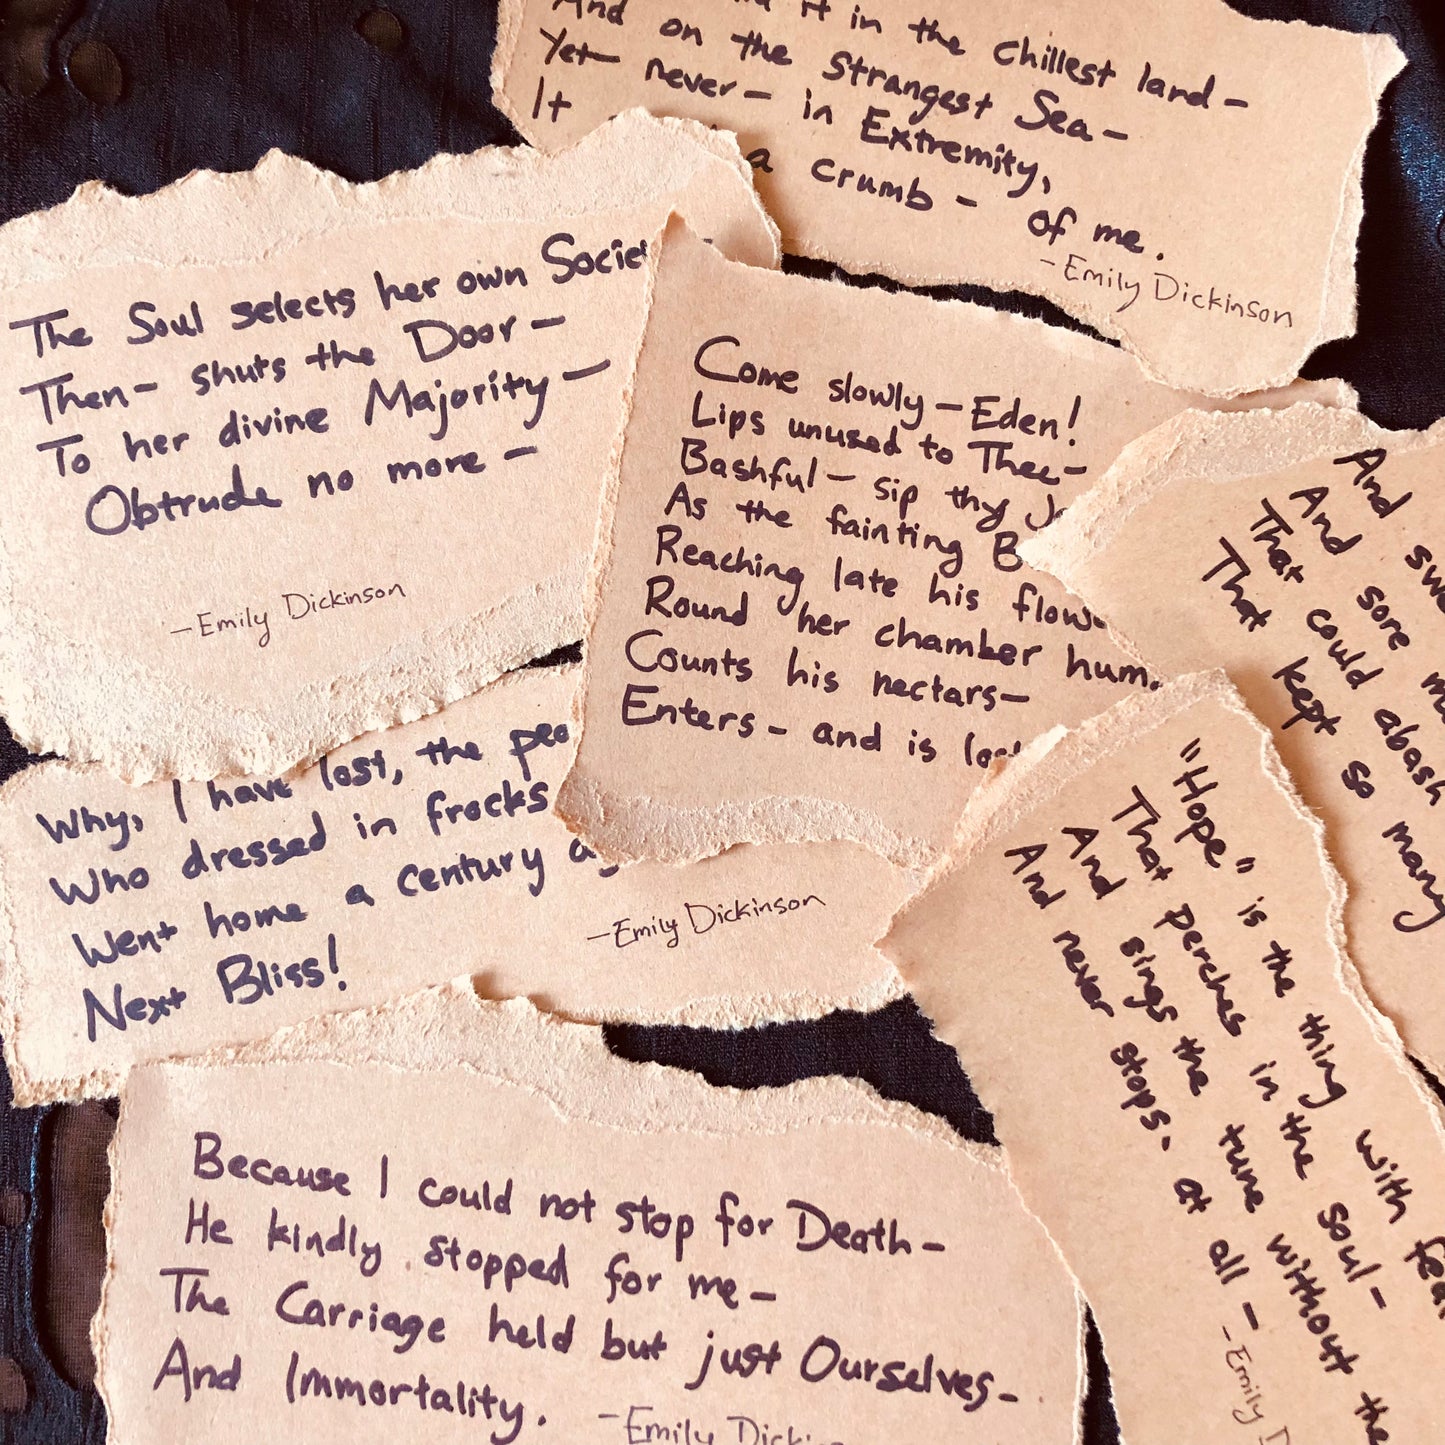 it in the chillest land-
And on the Strangest Sea-
Yet never- in Extremity,
It a crumb- of me.
-Emily Dickinson
The Soul selects her own
Then- shuts the Door-
To her divine Majority-
Obtrude no more-
-Emily Dickinson
Come slowly-Eden!
Lips unused to Thee-
Bashful- sip thy
As the fainting
Reaching late his
Round her chamber hum
Counts his nectars-
Enters- and is
And
And sore
That could abash
That kept so many
Why, I have lost, the
Who dressed in frocks
Went home a century
Next Bliss!
-Emily Dickinson
"Hope" is the thing with
That perches in the soul-
And sings the tune without the
And never stops- at all-
-Emily
Because I could not stop for Death-
He kindly stopped for me-
The Carriage held but just Ourselves-
And Immortality.
-Emily